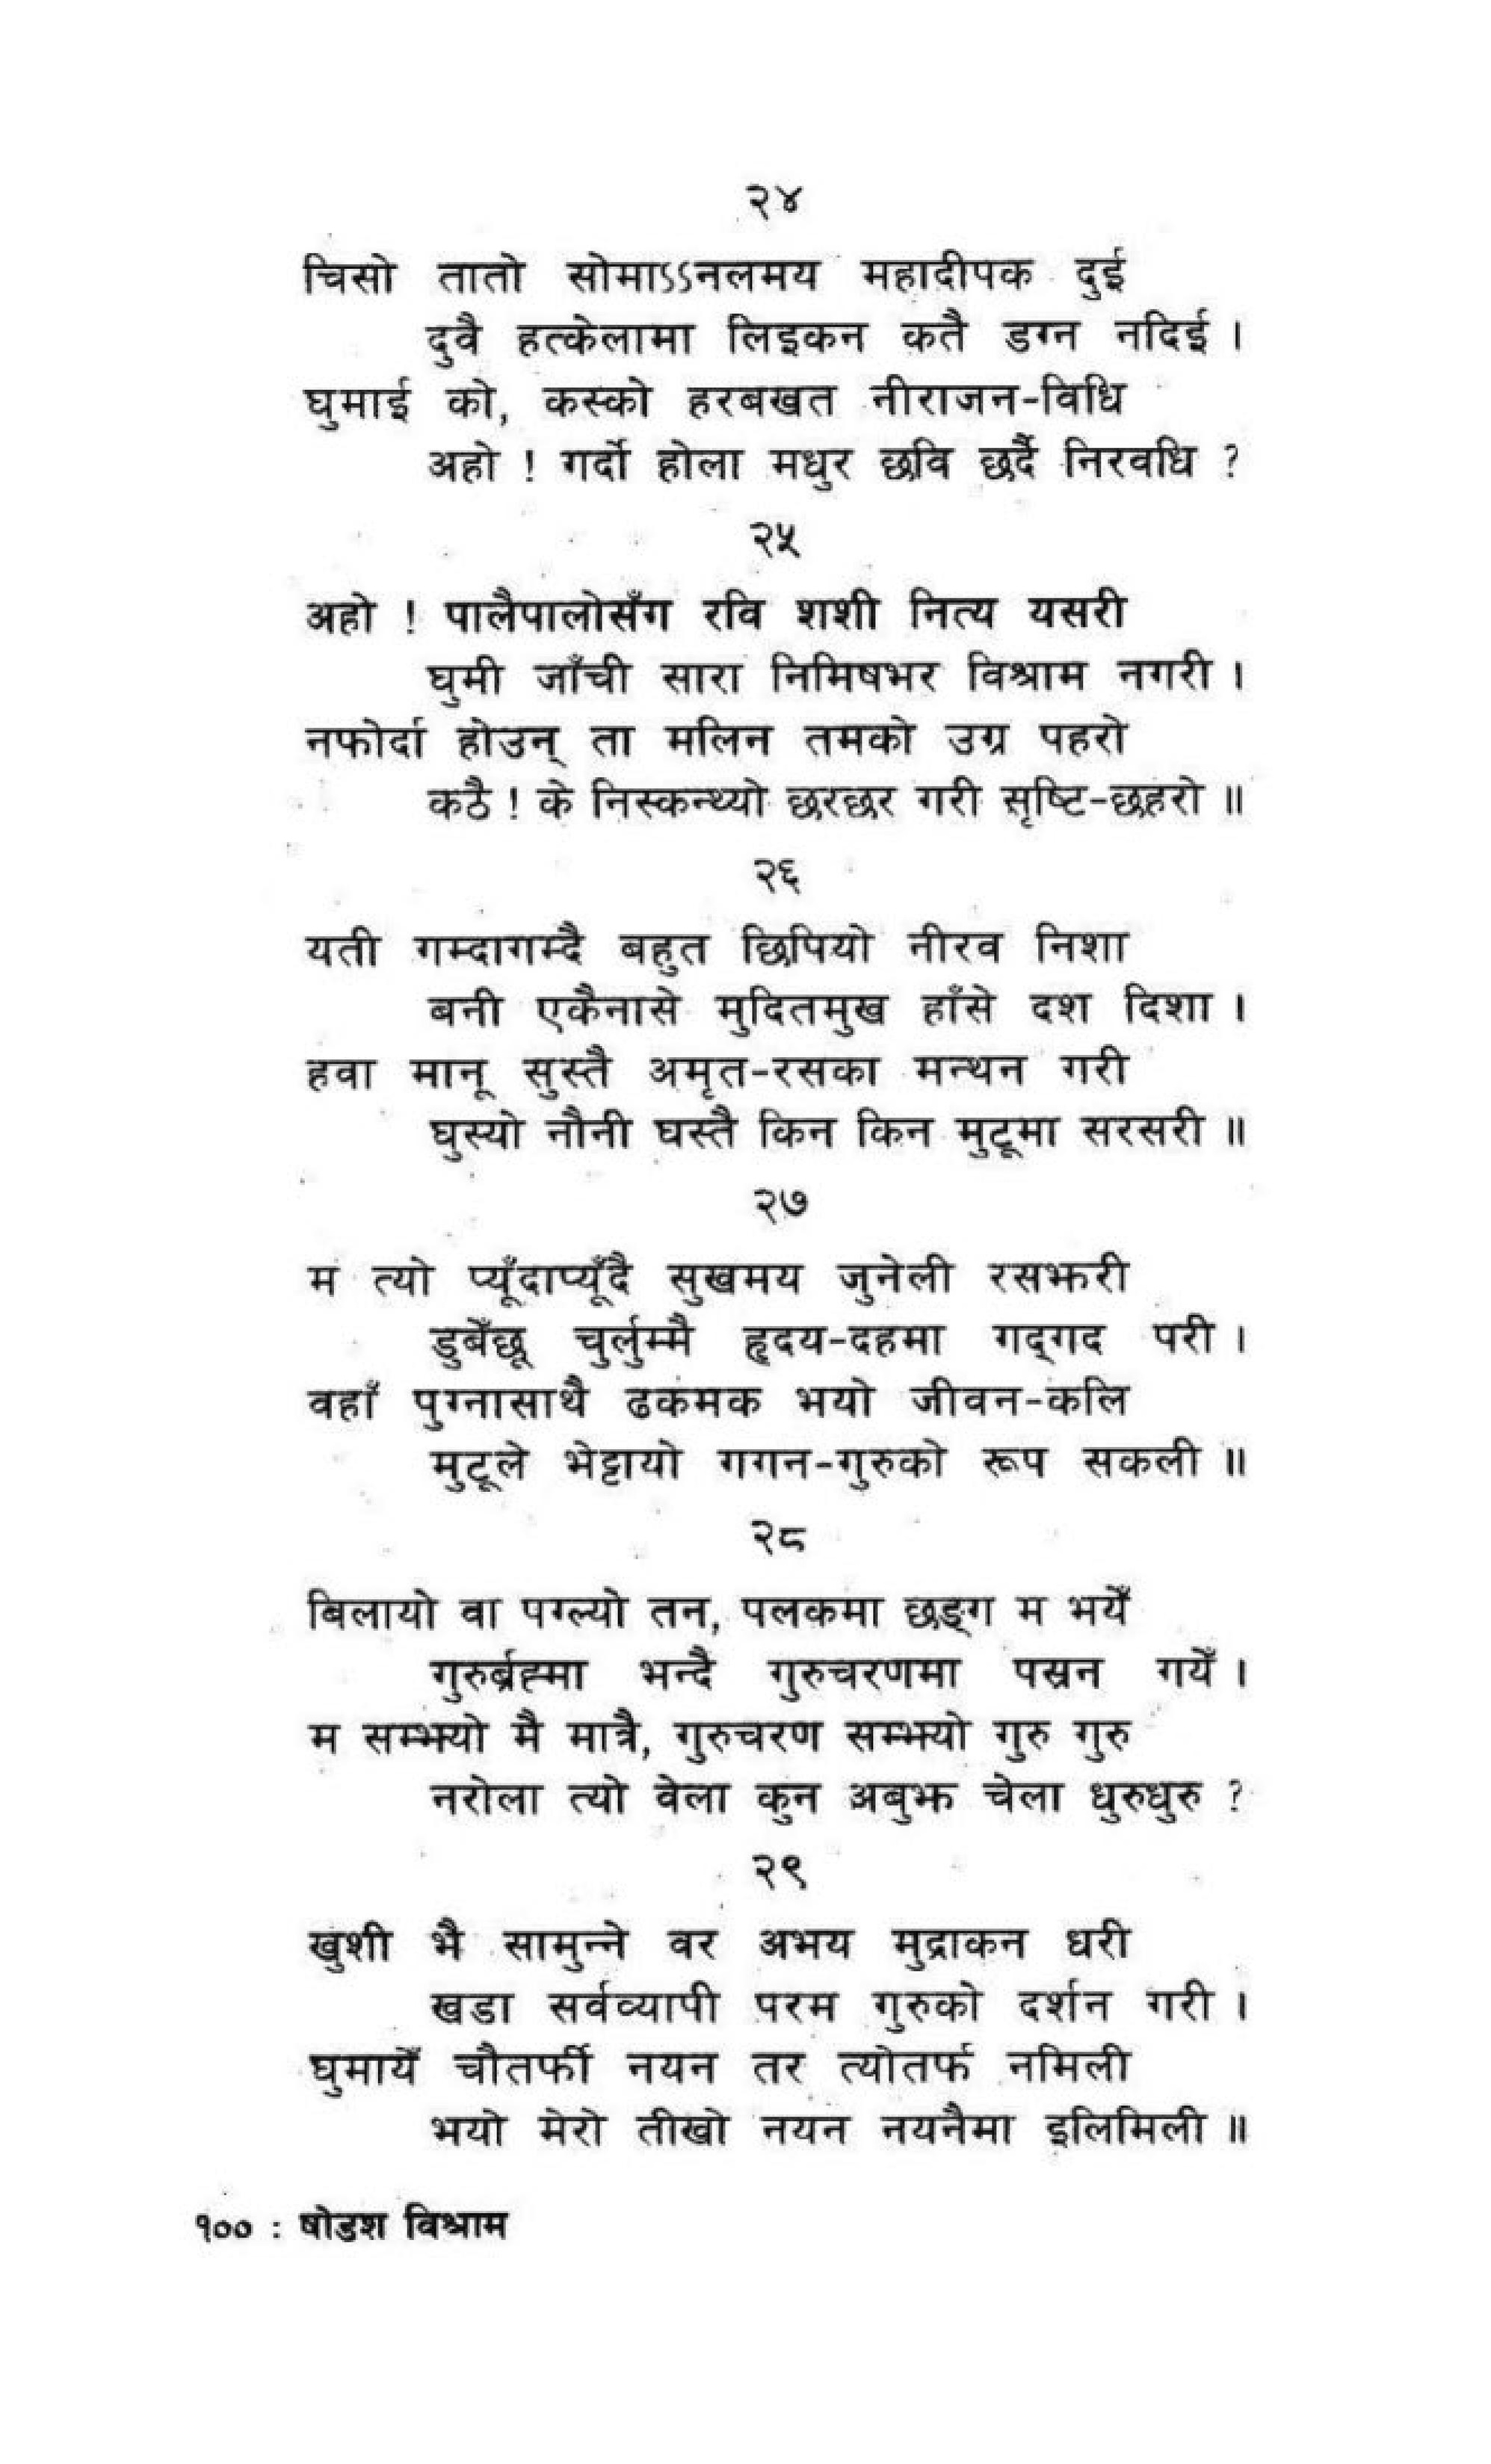 २४
चिसो तातो सोमाऽऽनलमय महादीपक दुई
दुवै हत्केलामा लिइकन कतै डग्न नदिई ।
घुमाई को, कस्को हरबखत नीराजन-विधि
अहो ! गर्दो होला मधुर छवि छर्दै निरवधि ?
२५
अहो ! पालैपालोसँग रवि शशी नित्य यसरी
घुमी जाँची सारा निमिषभर विश्राम नगरी ।
नफोर्दा होउन् ता मलिन तमको उग्र पहरो
कठै ! के निस्कन्थ्यो छरछर गरी सृष्टि-छहरो ॥
२६
यती गम्दागम्दै बहुत छिपियो नीरव निशा
बनी एकैनासे मुदितमुख हाँसे दश दिशा ।
हवा मानू सुस्तै अमृत-रसका मन्थन गरी
घुस्यो नौनी घस्तै किन किन मुटूमा सरसरी ॥
२७
म त्यो प्यूँदाप्यूँदै सुखमय जुनेली रसझरी
डुबेँछू चुर्लुम्मै हृदय-दहमा गद्‌गद परी ।
वहाँ पुग्नासाथै ढकमक भयो जीवन-कलि
मुटूले भेट्टायो गगन-गुरुको रूप सकली ॥
२८
बिलायो वा पग्ल्यो तन, पलकमा छङ्ग म भयेँ
गुरुर्ब्रह्मा भन्दै गुरुचरणमा पस्रन गयेँ ।
म सम्झ्यो मै मात्रै, गुरुचरण सम्झ्यो गुरु गुरु
नरोला त्यो वेला कुन अबुझ चेला धुरुधुरु ?
२९
खुशी भै सामुन्ने वर अभय मुद्राकन धरी
खडा सर्वव्यापी परम गुरुको दर्शन गरी ।
घुमायेँ चौतर्फी नयन तर त्योतर्फ नमिली
भयो मेरो तीखो नयन नयनैमा इलिमिली ॥
१०० : षोडश विश्राम